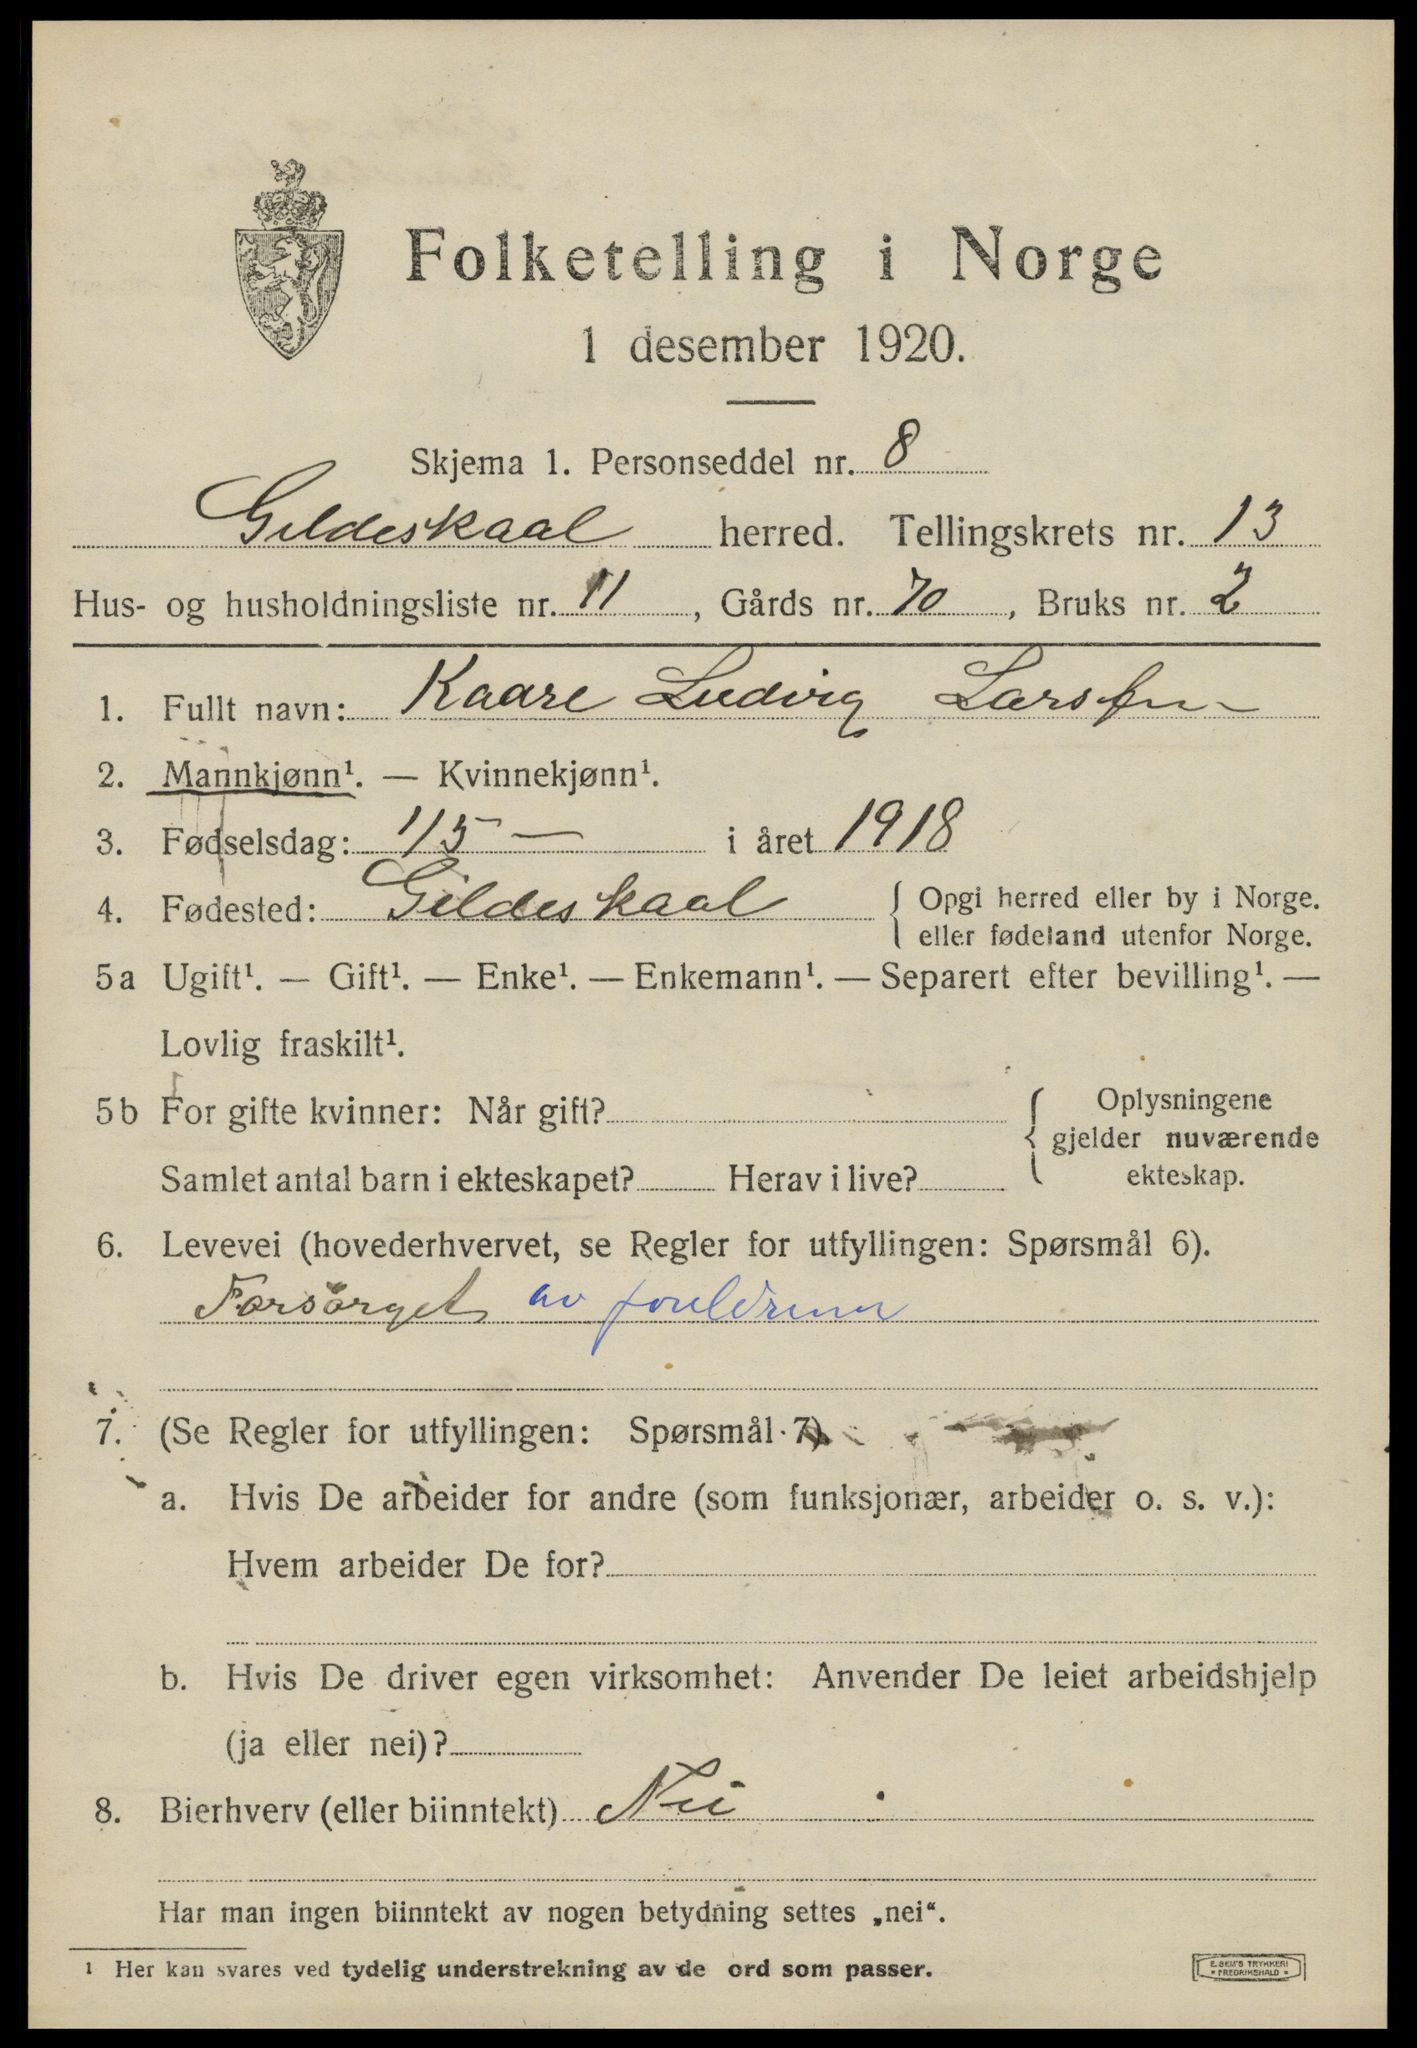 Folketelling i Norge
1 desember 1920.
Skjema 1. Personseddel nr. 8
Gildeskaal herred. Tellingskrets nr. 13
Hus- og husholdningsliste nr. 11, Gårds nr. 70, Bruks nr. 2
1. Fullt navn: Kaare Ludvig Larsen
2. Mannkjønn¹. — Kvinnekjønn¹.
3. Fødselsdag: 1/5 — i året 1918
4. Fødested: Gildeskaal { Opgi herred eller by i Norge.
eller fødeland utenfor Norge.
5a Ugift¹. — Gift¹. — Enke¹. — Enkemann¹. — Separert efter bevilling¹. —
Lovlig fraskilt¹.
5b For gifte kvinner: Når gift? { Oplysningene
gjelder nuværende
Samlet antal barn i ekteskapet? Herav i live? ekteskap.
6. Levevei (hovederhvervet, se Regler for utfyllingen: Spørsmål 6).
Forsörget av foreldrene
7. (Se Regler for utfyllingen: Spørsmål 7).
a. Hvis De arbeider for andre (som funksjonær, arbeider o. s. v.):
Hvem arbeider De for?
b. Hvis De driver egen virksomhet: Anvender De leiet arbeidshjelp
(ja eller nei)?
8. Bierhverv (eller biinntekt) Nei
Har man ingen biinntekt av nogen betydning settes „nei“.
¹ Her kan svares ved tydelig understrekning av de ord som passer.
E. SEM'S TRYKKERI
FREDRIKSHALD